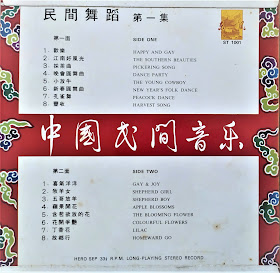 民間舞蹈 第一集
ST 1001
第一面 SIDE ONE
1 · 歡樂 HAPPY AND GAY
2 · 江南好風光 THE SOUTHERN BEAUTIES
3 · 採茶曲 PICKERING SONG
4 · 晚會圓舞曲 DANCE PARTY
5 · 小放牛 THE YOUNG COWBOY
6 · 新春圓舞曲 NEW YEAR'S FOLK DANCE
7 · 孔雀舞 PEACOCK DANCE
8 · 豐收 HARVEST SONG
中國民間音乐
第二面 SIDE TWO
1 · 喜氣洋洋 GAY & JOY
2 · 牧羊女 SHEPHERD GIRL
3 · 五哥放羊 SHEPHERD BOY
4 · 蘋果開花 APPLE BLOSSOMS
5 · 含苞欲放的花 THE BLOOMING FLOWER
6 · 花開爭艷 COLOURFUL FLOWERS
7 · 丁香花 LILAC
8 · 故鄉行 HOMEWARD GO
HERD SEP 33⅓ R.P.M. LONG-PLAYING STEREO RECORD